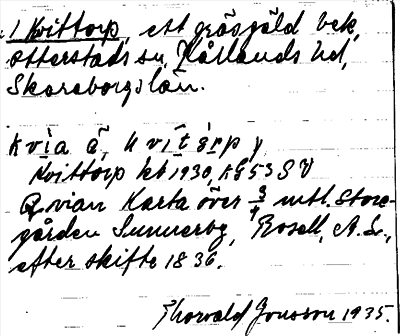 1 Kvittorp, ett gräsgäld bek,
Otterstads sn, Kållands hd,
Skaraborgs län.
kvia å, kvitårp,
Kvittorp kb 1930, AG 53 SV
Qvian Karta över 3/4 mtl. Store-
gården Sunnerby, Rosell, A. L.,
efter skifte 1836.
Thorvald Jonsson 1935.